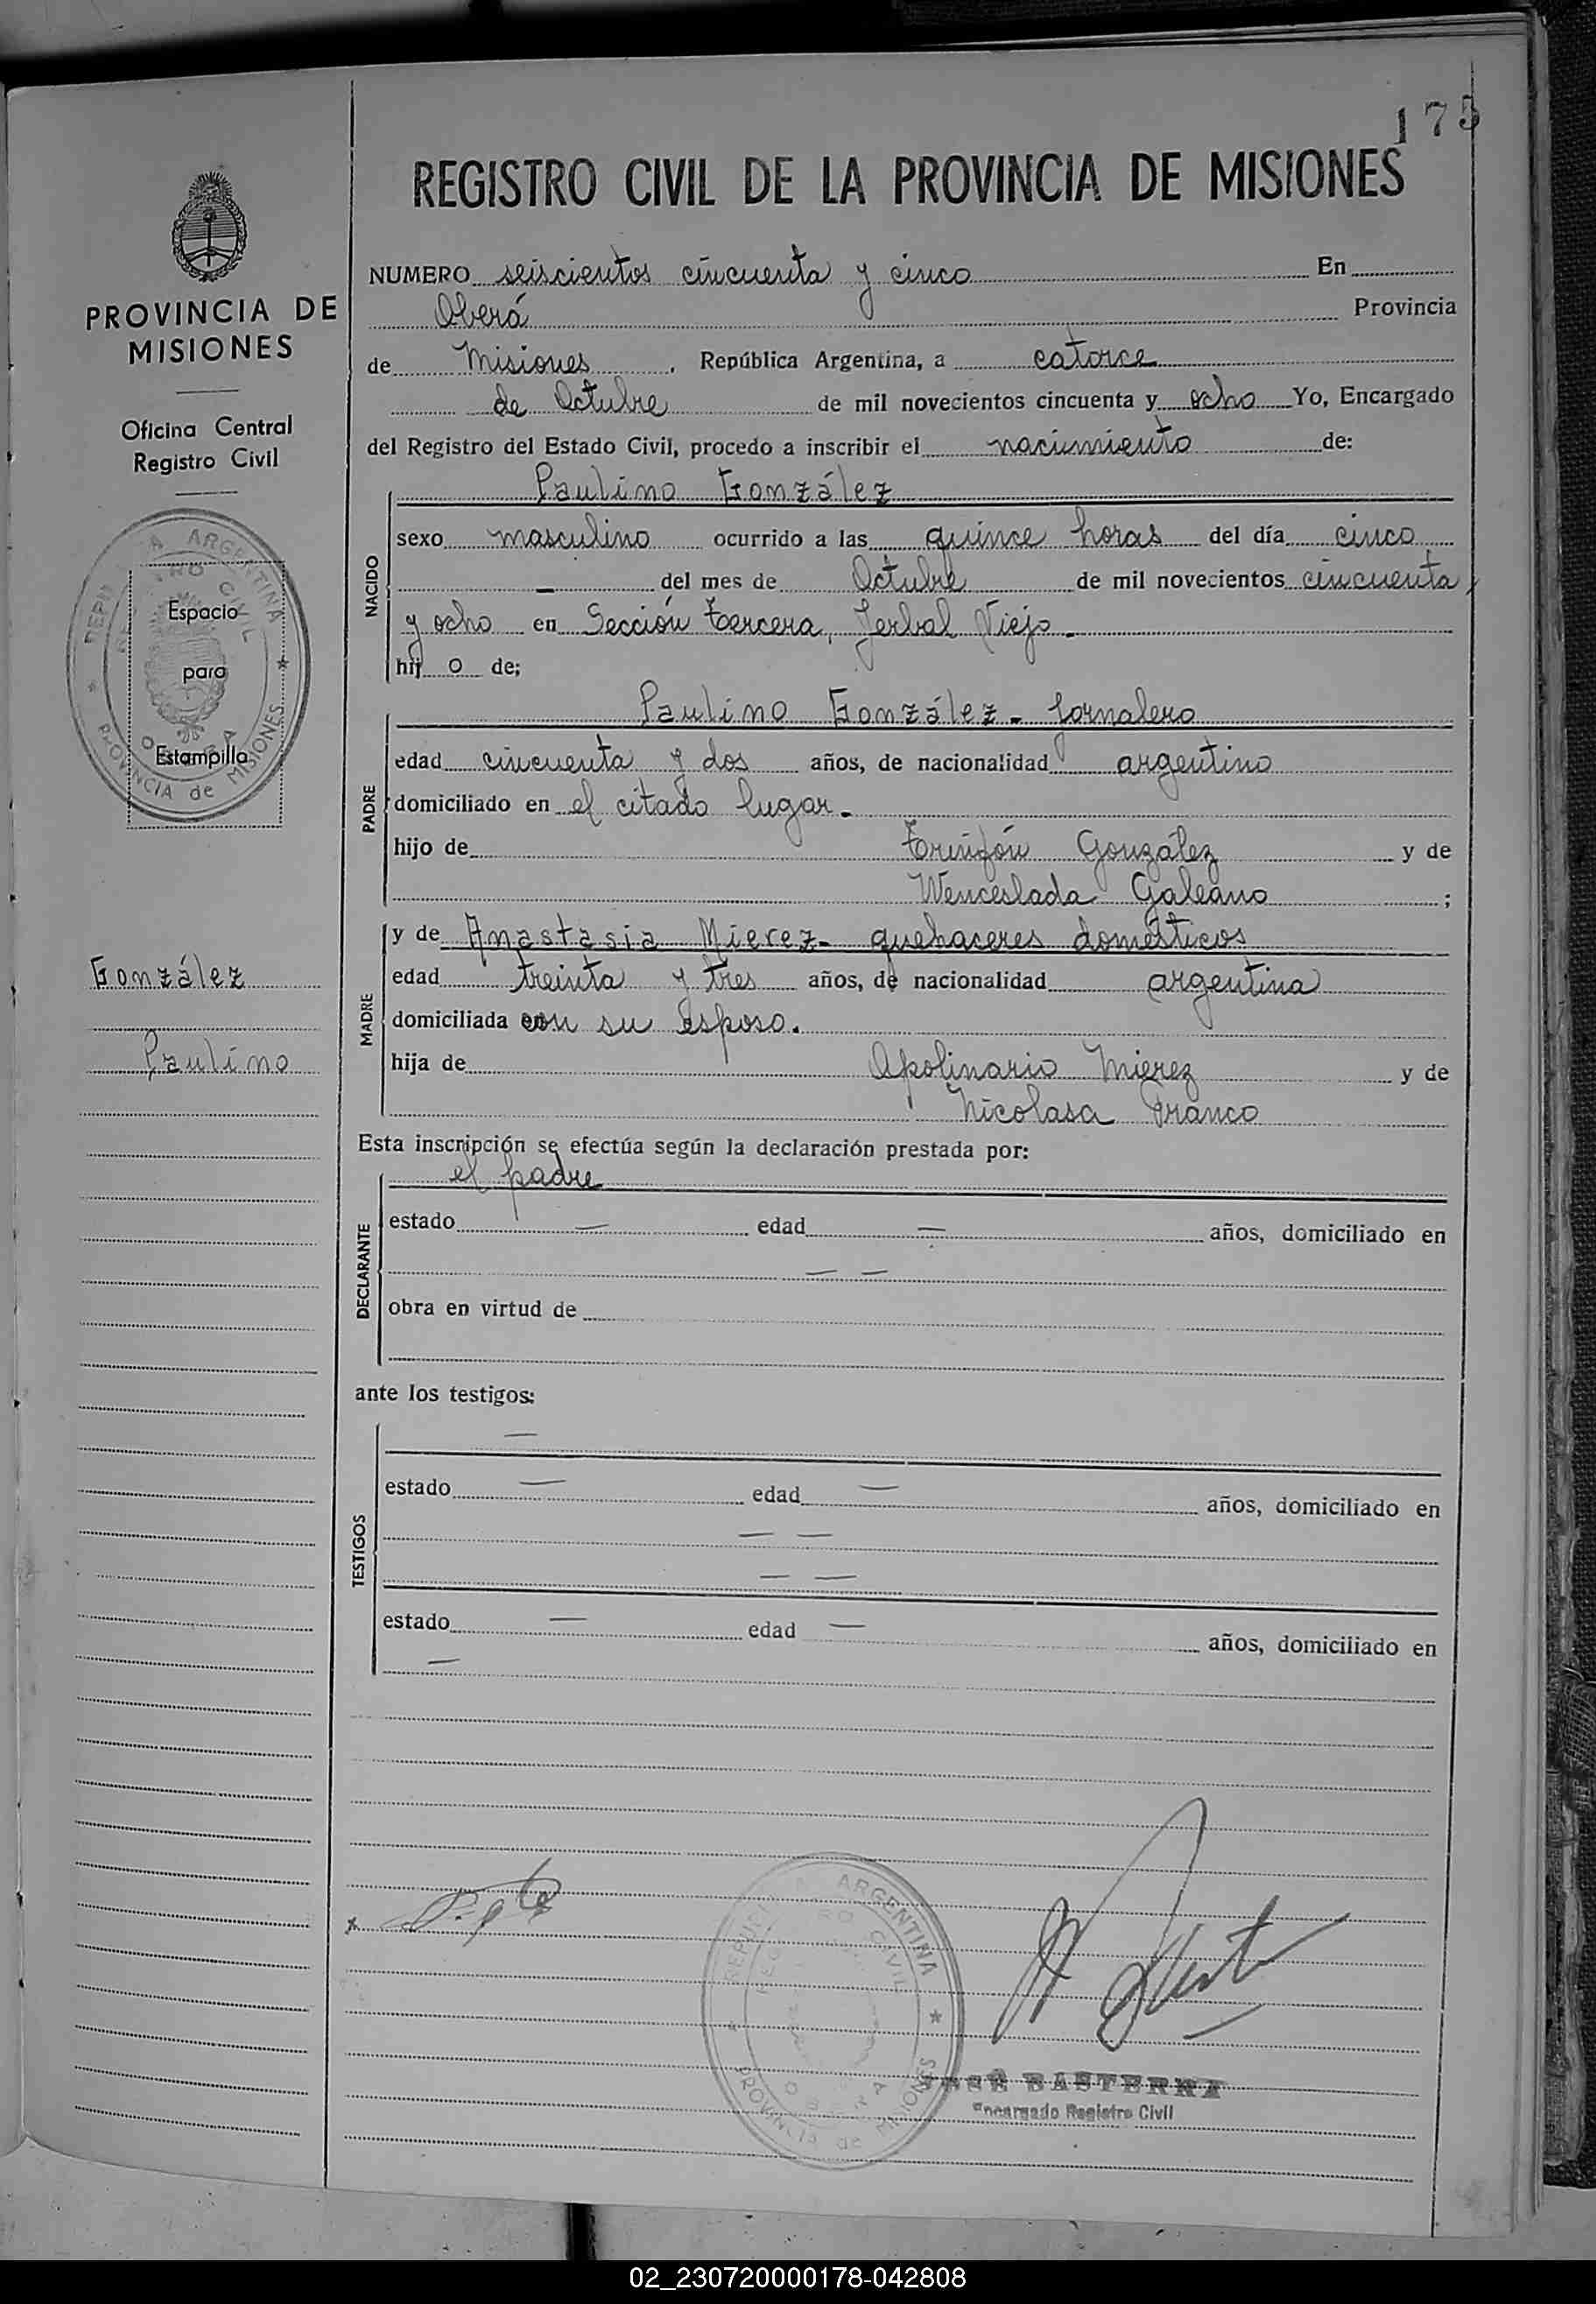 175
REGISTRO CIVIL DE LA PROVINCIA DE MISIONES
PROVINCIA DE
MISIONES
Oficina Central
Registro Civil
REPUBLICA ARGENTINA
REGISTRO CIVIL
OBERA
PROVINCIA de MISIONES
Espacio
para
Estampilla
González
Paulino
NUMERO seiscientos cincuenta y cinco En
Oberá Provincia
de Misiones, República Argentina, a catorce
de Octubre de mil novecientos cincuenta y ocho Yo, Encargado
del Registro del Estado Civil, procedo a inscribir el nacimiento de:
Paulino González
NACIDO
sexo masculino ocurrido a las quince horas del día cinco
— del mes de Octubre de mil novecientos cincuenta
y ocho en Sección tercera, Yerbal Viejo.-
hij o de;
Paulino González - Jornalero
PADRE
edad cincuenta y dos años, de nacionalidad argentino
domiciliado en el citado lugar.-
hijo de González y de
Wenceslada Galeano ;
MADRE
y de Anastasia Mierez- quehaceres domésticos
edad treinta y tres años, de nacionalidad argentina
domiciliada con su esposo.
hija de Apolinario Mierez y de
Nicolasa Franco
Esta inscripción se efectúa según la declaración prestada por:
DECLARANTE
el padre
estado — edad — años, domiciliado en
— —
obra en virtud de
ante los testigos:
TESTIGOS
—
estado — edad — años, domiciliado en
— —
— —
estado — edad — años, domiciliado en
—
REPUBLICA ARGENTINA
REGISTRO CIVIL
OBERA
PROVINCIA de MISIONES
Encargado Registro Civil
02_230720000178-042808